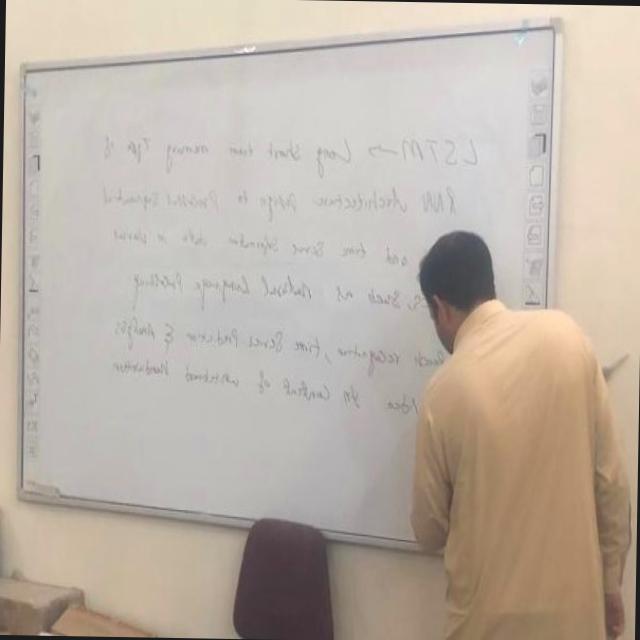 LSTM → Long Short term memory Type of
RNN Architecture design to Process Sequential
and time Series data in various
Such as Natural Language Processing
recognition, time Series Prediction & Analysis
In Context of whiteboard Handwritten